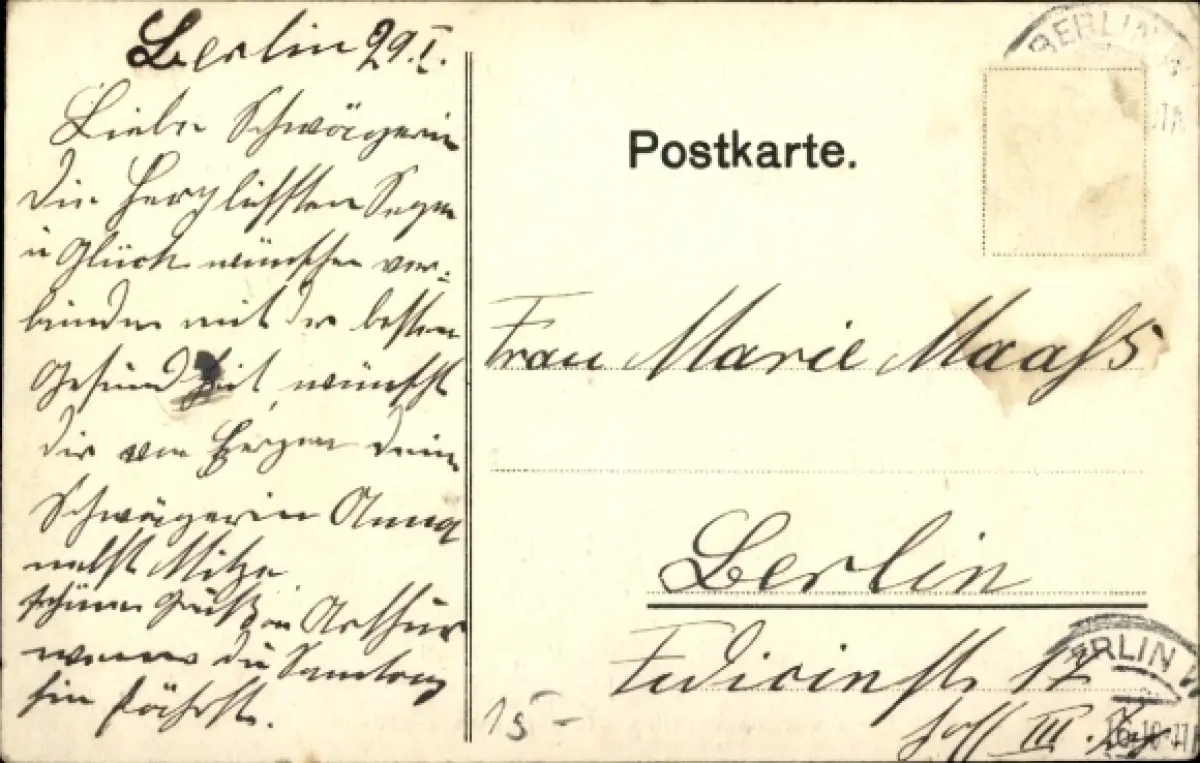 Berlin 29.I.
Liebe Schwägerin
Die herzlichsten Segen
u Glück wünschen ver-
bunden mit der besten
Gesundheit, wünscht
dir von Herzen deine
Schwägerin Anna
nebst Mitze
schönen Gruß an Arthur
wenn du Sonntag
hin fährst.
Postkarte.
Frau Marie Maaß
Berlin
Fidicinstr 12
Hof III.
15-
BERLIN
BERLIN